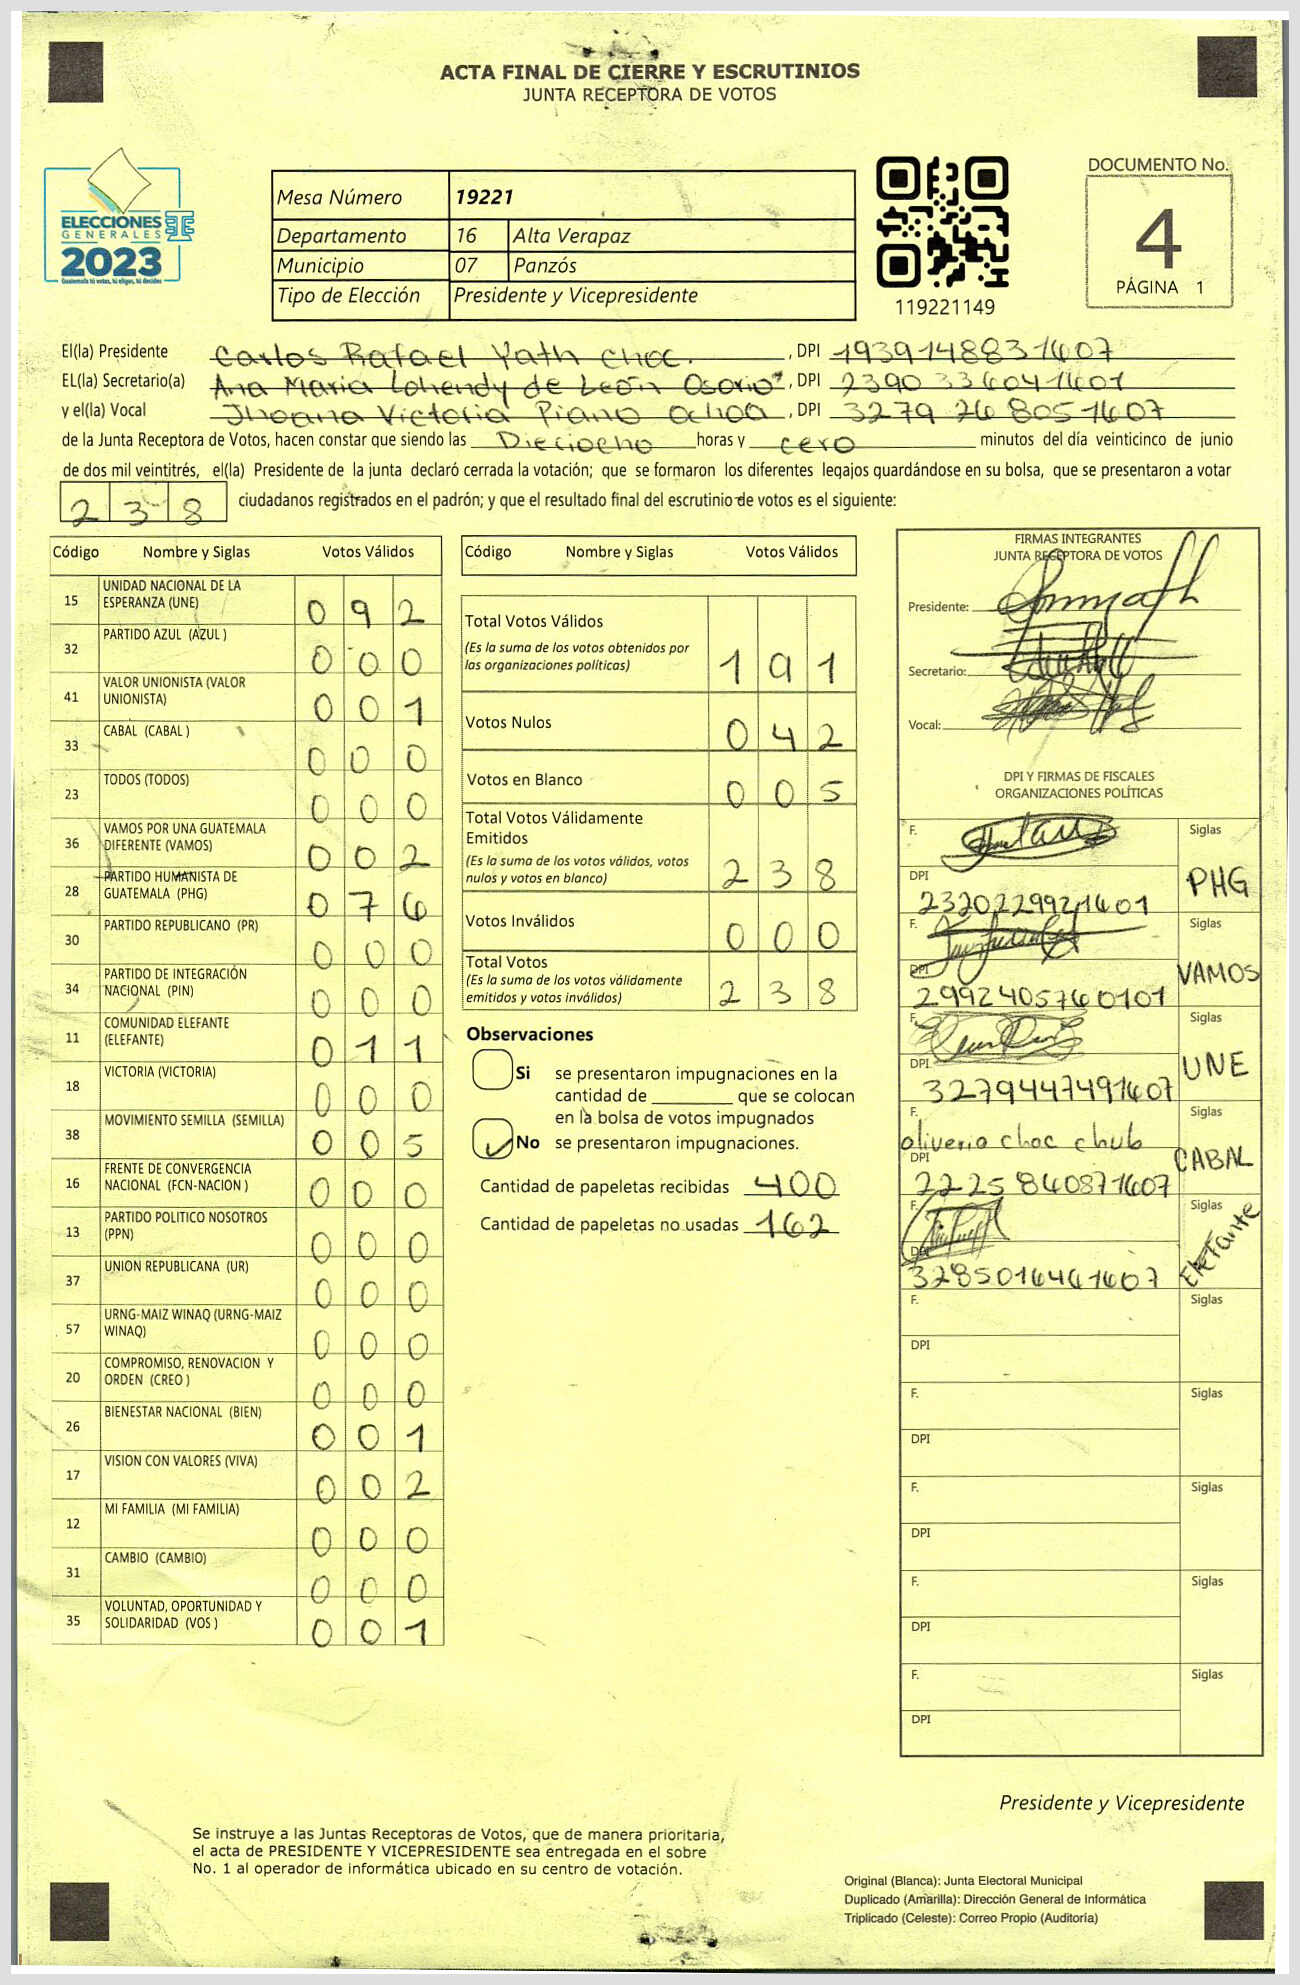 ACTA FINAL DE CIERRE Y ESCRUTINIOS
JUNTA RECEPTORA DE VOTOS
ELECCIONES
GENERALES
2023
Guatemala tú votas, tú eliges, tú decides
Mesa Número 19221
Departamento 16 Alta Verapaz
Municipio 07 Panzós
Tipo de Elección Presidente y Vicepresidente
119221149
DOCUMENTO No.
4
PÁGINA 1
El(la) Presidente Carlos Rafael Yath Choc. , DPI 1939148831607
EL(la) Secretario(a) Ana Maria Lohendy de León Osorio , DPI 2390336041601
y el(la) Vocal Jhoana Victoria Piano Ochoa , DPI 3279268051607
de la Junta Receptora de Votos, hacen constar que siendo las Dieciocho horas y cero minutos del día veinticinco de junio
de dos mil veintitrés, el(la) Presidente de la junta declaró cerrada la votación; que se formaron los diferentes legajos quardándose en su bolsa, que se presentaron a votar
238 ciudadanos registrados en el padrón; y que el resultado final del escrutinio de votos es el siguiente:
Código Nombre y Siglas Votos Válidos
15 UNIDAD NACIONAL DE LA ESPERANZA (UNE) 092
32 PARTIDO AZUL (AZUL ) 000
41 VALOR UNIONISTA (VALOR UNIONISTA) 001
33 CABAL (CABAL ) 000
23 TODOS (TODOS) 000
36 VAMOS POR UNA GUATEMALA DIFERENTE (VAMOS) 002
28 PARTIDO HUMANISTA DE GUATEMALA (PHG) 076
30 PARTIDO REPUBLICANO (PR) 000
34 PARTIDO DE INTEGRACIÓN NACIONAL (PIN) 000
11 COMUNIDAD ELEFANTE (ELEFANTE) 011
18 VICTORIA (VICTORIA) 000
38 MOVIMIENTO SEMILLA (SEMILLA) 005
16 FRENTE DE CONVERGENCIA NACIONAL (FCN-NACION ) 000
13 PARTIDO POLITICO NOSOTROS (PPN) 000
37 UNION REPUBLICANA (UR) 000
57 URNG-MAIZ WINAQ (URNG-MAIZ WINAQ) 000
20 COMPROMISO, RENOVACION Y ORDEN (CREO ) 000
26 BIENESTAR NACIONAL (BIEN) 001
17 VISION CON VALORES (VIVA) 002
12 MI FAMILIA (MI FAMILIA) 000
31 CAMBIO (CAMBIO) 000
35 VOLUNTAD, OPORTUNIDAD Y SOLIDARIDAD (VOS ) 001
Código Nombre y Siglas Votos Válidos
Total Votos Válidos
(Es la suma de los votos obtenidos por
las organizaciones políticas) 191
Votos Nulos 042
Votos en Blanco 005
Total Votos Válidamente
Emitidos
(Es la suma de los votos válidos, votos
nulos y votos en blanco) 238
Votos Inválidos 000
Total Votos
(Es la suma de los votos válidamente
emitidos y votos inválidos) 238
Observaciones
Si se presentaron impugnaciones en la
cantidad de ________ que se colocan
en la bolsa de votos impugnados
No se presentaron impugnaciones.
Cantidad de papeletas recibidas 400
Cantidad de papeletas no usadas 162
FIRMAS INTEGRANTES
JUNTA RECEPTORA DE VOTOS
Presidente:
Secretario:
Vocal:
DPI Y FIRMAS DE FISCALES
ORGANIZACIONES POLÍTICAS
F. Siglas
PHG
DPI
2320229921601
F. Siglas
VAMOS
DPI
2992405760101
F. Siglas
UNE
DPI
3279447491607
F. Siglas
oliverio choc chub
CABAL
DPI
2225840871607
F. Siglas
Elefante
DPI
3285016461607
F. Siglas
DPI
F. Siglas
DPI
F. Siglas
DPI
F. Siglas
DPI
F. Siglas
DPI
Presidente y Vicepresidente
Se instruye a las Juntas Receptoras de Votos, que de manera prioritaria,
el acta de PRESIDENTE Y VICEPRESIDENTE sea entregada en el sobre
No. 1 al operador de informática ubicado en su centro de votación.
Original (Blanca): Junta Electoral Municipal
Duplicado (Amarilla): Dirección General de Informática
Triplicado (Celeste): Correo Propio (Auditoría)